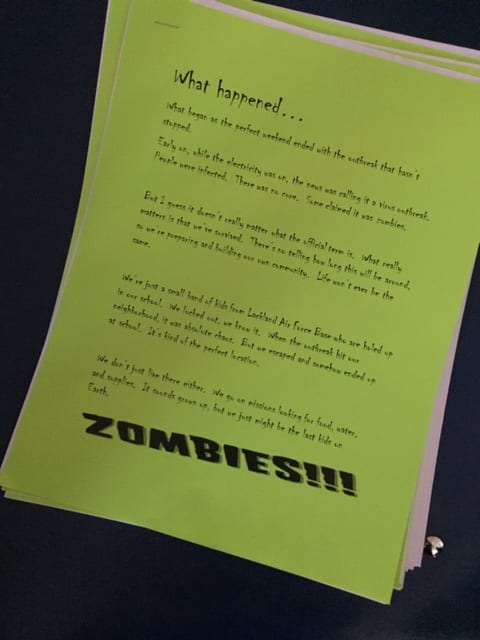 What happened...
What began as the perfect weekend ended with the outbreak that hasn't
stopped.
Early on, while the electricity was on, the news was calling it a virus outbreak.
People were infected. There was no cure. Some claimed it was zombies.
But I guess it doesn't really matter what the official term is. What really
matters is that we've survived. There's no telling how long this will be around,
so we're preparing and building our own community. Life won't ever be the
same.
We're just a small band of kids from Lackland Air Force Base who are holed up
in our school. We lucked out, we know it. When the outbreak hit our
neighborhood, it was absolute chaos. But we escaped and somehow ended up
at school. It's kind of the perfect location.
We don't just live there either. We go on missions looking for food, water,
and supplies. It sounds grown up, but we just might be the last kids on
Earth.
ZOMBIES!!!